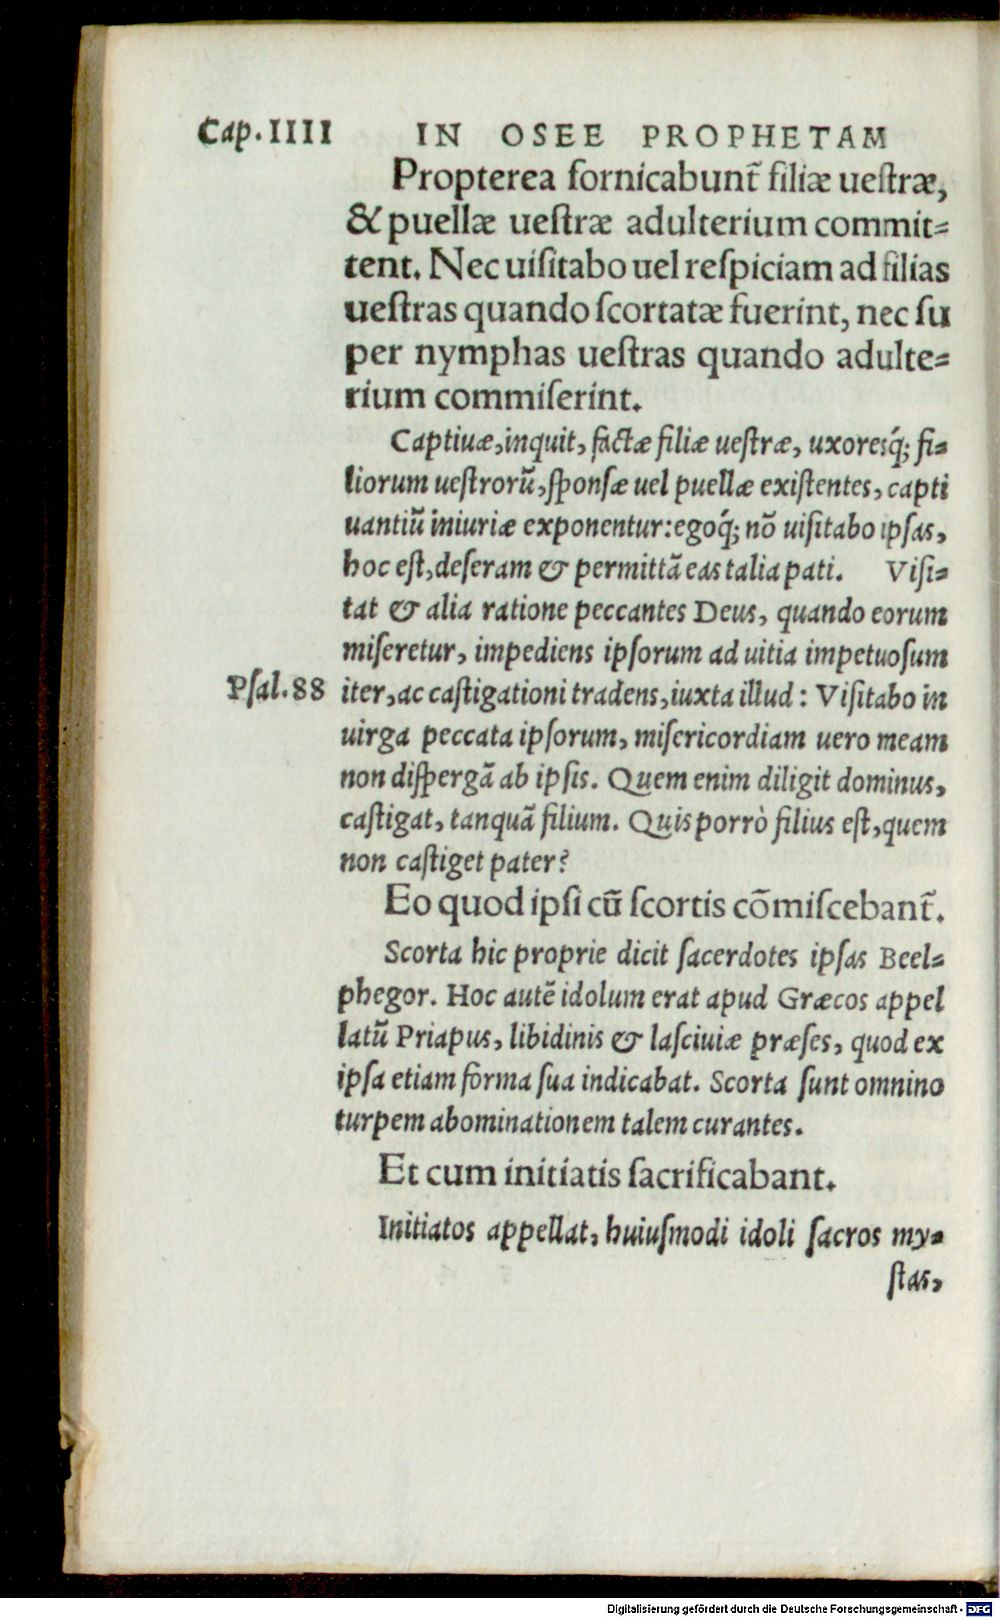 Cap. IIII IN OSEE PROPHETAM
Propterea fornicabunt̃ filiæ ueſtræ,
& puellæ ueſtræ adulterium commit=
tent. Nec uiſitabo uel reſpiciam ad filias
ueſtras quando ſcortatæ fuerint, nec ſu
per nymphas ueſtras quando adulte=
rium commiſerint.
Captiuæ, inquit, factæ filiæ ueſtræ, uxoresq́; fi=
liorum ueſtrorũ, ſponſæ uel puellæ exiſtentes, capti
uantiũ iniuriæ exponentur: egoq́; nõ uiſitabo ipſas,
hoc eſt, deſeram & permittã eas talia pati. Viſi=
tat & alia ratione peccantes Deus, quando eorum
miſeretur, impediens ipſorum ad uitia impetuoſum
Pſal. 88 iter, ac caſtigationi tradens, iuxta illud: Viſitabo in
uirga peccata ipſorum, miſericordiam uero meam
non diſpergã ab ipſis. Quem enim diligit dominus,
caſtigat, tanquã filium. Quis porrò filius eſt, quem
non caſtiget pater?
Eo quod ipſi cũ ſcortis cõmiſcebant̃.
Scorta hic proprie dicit ſacerdotes ipſas Beel=
phegor. Hoc autẽ idolum erat apud Græcos appel
latũ Priapus, libidinis & laſciuiæ præſes, quod ex
ipſa etiam forma ſua indicabat. Scorta ſunt omnino
turpem abominationem talem curantes.
Et cum initiatis ſacrificabant.
Initiatos appellat, huiuſmodi idoli ſacros my=
ſtas,
Digitalisierung gefördert durch die Deutsche Forschungsgemeinschaft - DFG